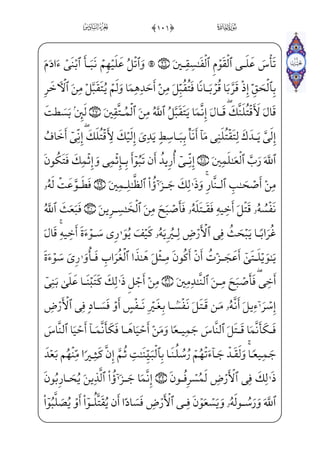 سُورَةُ المَائِدَةِ ﴿١٠٦﴾ الجُزءُ السَّادِسُ
تَأۡسَ عَلَى ٱلۡقَوۡمِ ٱلۡفَٰسِقِينَ ۞ وَٱتۡلُ عَلَيۡهِمۡ نَبَأَ ٱبۡنَيۡ ءَادَمَ
بِٱلۡحَقِّ إِذۡ قَرَّبَا قُرۡبَانٗا فَتُقُبِّلَ مِنۡ أَحَدِهِمَا وَلَمۡ يُتَقَبَّلۡ مِنَ ٱلۡأٓخَرِ
قَالَ لَأَقۡتُلَنَّكَۖ قَالَ إِنَّمَا يَتَقَبَّلُ ٱللَّهُ مِنَ ٱلۡمُتَّقِينَ لَئِنۢ بَسَطتَ
إِلَيَّ يَدَكَ لِتَقۡتُلَنِي مَآ أَنَا۠ بِبَاسِطٖ يَدِيَ إِلَيۡكَ لِأَقۡتُلَكَۖ إِنِّيٓ أَخَافُ
ٱللَّهَ رَبَّ ٱلۡعَٰلَمِينَ إِنِّيٓ أُرِيدُ أَن تَبُوٓأَ بِإِثۡمِي وَإِثۡمِكَ فَتَكُونَ
مِنۡ أَصۡحَٰبِ ٱلنَّارِۚ وَذَٰلِكَ جَزَٰٓؤُاْ ٱلظَّٰلِمِينَ فَطَوَّعَتۡ لَهُۥ
نَفۡسُهُۥ قَتۡلَ أَخِيهِ فَقَتَلَهُۥ فَأَصۡبَحَ مِنَ ٱلۡخَٰسِرِينَ فَبَعَثَ ٱللَّهُ
غُرَابٗا يَبۡحَثُ فِي ٱلۡأَرۡضِ لِيُرِيَهُۥ كَيۡفَ يُوَٰرِي سَوۡءَةَ أَخِيهِۚ قَالَ
يَٰوَيۡلَتَىٰٓ أَعَجَزۡتُ أَنۡ أَكُونَ مِثۡلَ هَٰذَا ٱلۡغُرَابِ فَأُوَٰرِيَ سَوۡءَةَ
أَخِيۖ فَأَصۡبَحَ مِنَ ٱلنَّٰدِمِينَ مِنۡ أَجۡلِ ذَٰلِكَ كَتَبۡنَا عَلَىٰ بَنِيٓ
إِسۡرَٰٓءِيلَ أَنَّهُۥ مَن قَتَلَ نَفۡسَۢا بِغَيۡرِ نَفۡسٍ أَوۡ فَسَادٖ فِي ٱلۡأَرۡضِ
فَكَأَنَّمَا قَتَلَ ٱلنَّاسَ جَمِيعٗا وَمَنۡ أَحۡيَاهَا فَكَأَنَّمَآ أَحۡيَا ٱلنَّاسَ
جَمِيعٗاۚ وَلَقَدۡ جَآءَتۡهُمۡ رُسُلُنَا بِٱلۡبَيِّنَٰتِ ثُمَّ إِنَّ كَثِيرٗا مِّنۡهُم بَعۡدَ
ذَٰلِكَ فِي ٱلۡأَرۡضِ لَمُسۡرِفُونَ إِنَّمَا جَزَٰٓؤُاْ ٱلَّذِينَ يُحَارِبُونَ
ٱللَّهَ وَرَسُولَهُۥ وَيَسۡعَوۡنَ فِي ٱلۡأَرۡضِ فَسَادًا أَن يُقَتَّلُوٓاْ أَوۡ يُصَلَّبُوٓاْ